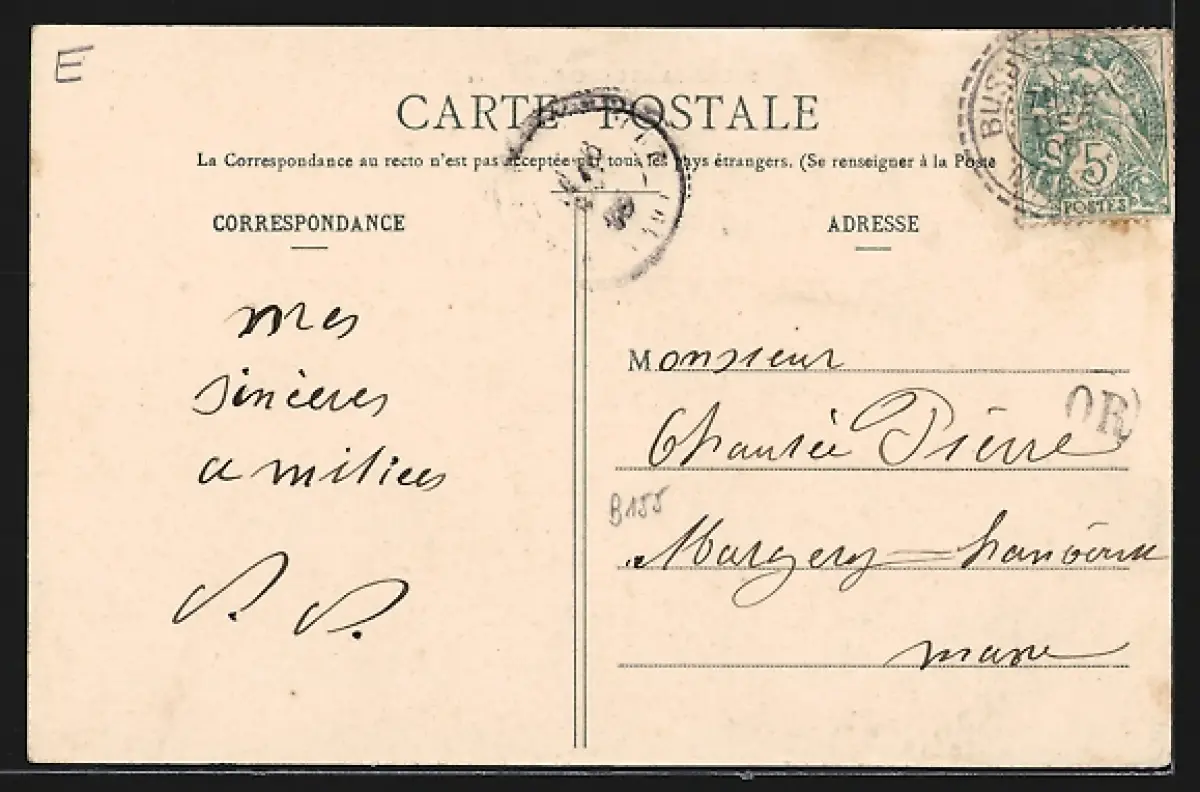 E
CARTE POSTALE
La Correspondance au recto n'est pas acceptée par tous les pays étrangers. (Se renseigner à la Poste
CORRESPONDANCE
mes
sincères
amitiées
ADRESSE
Monsieur
Pierre
B155
Margery
marne
BUSSY
5c
POSTES
OR